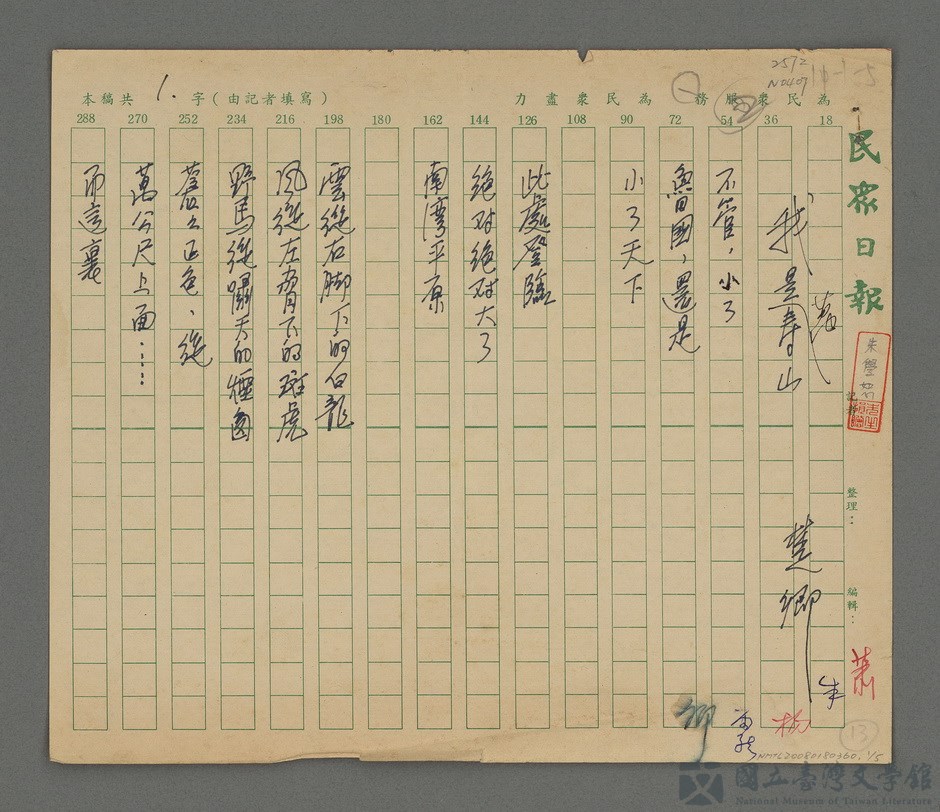 民眾日報
記者
整理：
編輯：
蕭
朱
為民眾服務
為民眾盡力
本稿共 1. 字（由記者填寫）
18
36
54
72
90
108
126
144
162
180
198
216
234
252
270
288
2512
N0407
我是壽山
楚卿
不管，小了
魯國，還是
小了天下
此處登臨
絕对絕对大了
南灣平原
雲從右脚下的白龍
風從左脅下的斑虎
野馬從嘯天的煙囪
蒼之正色、從
萬公尺上面……
而這裏
13
NMTL20080180360, 1/5
國立臺灣文學館
National Museum of Taiwan Literature